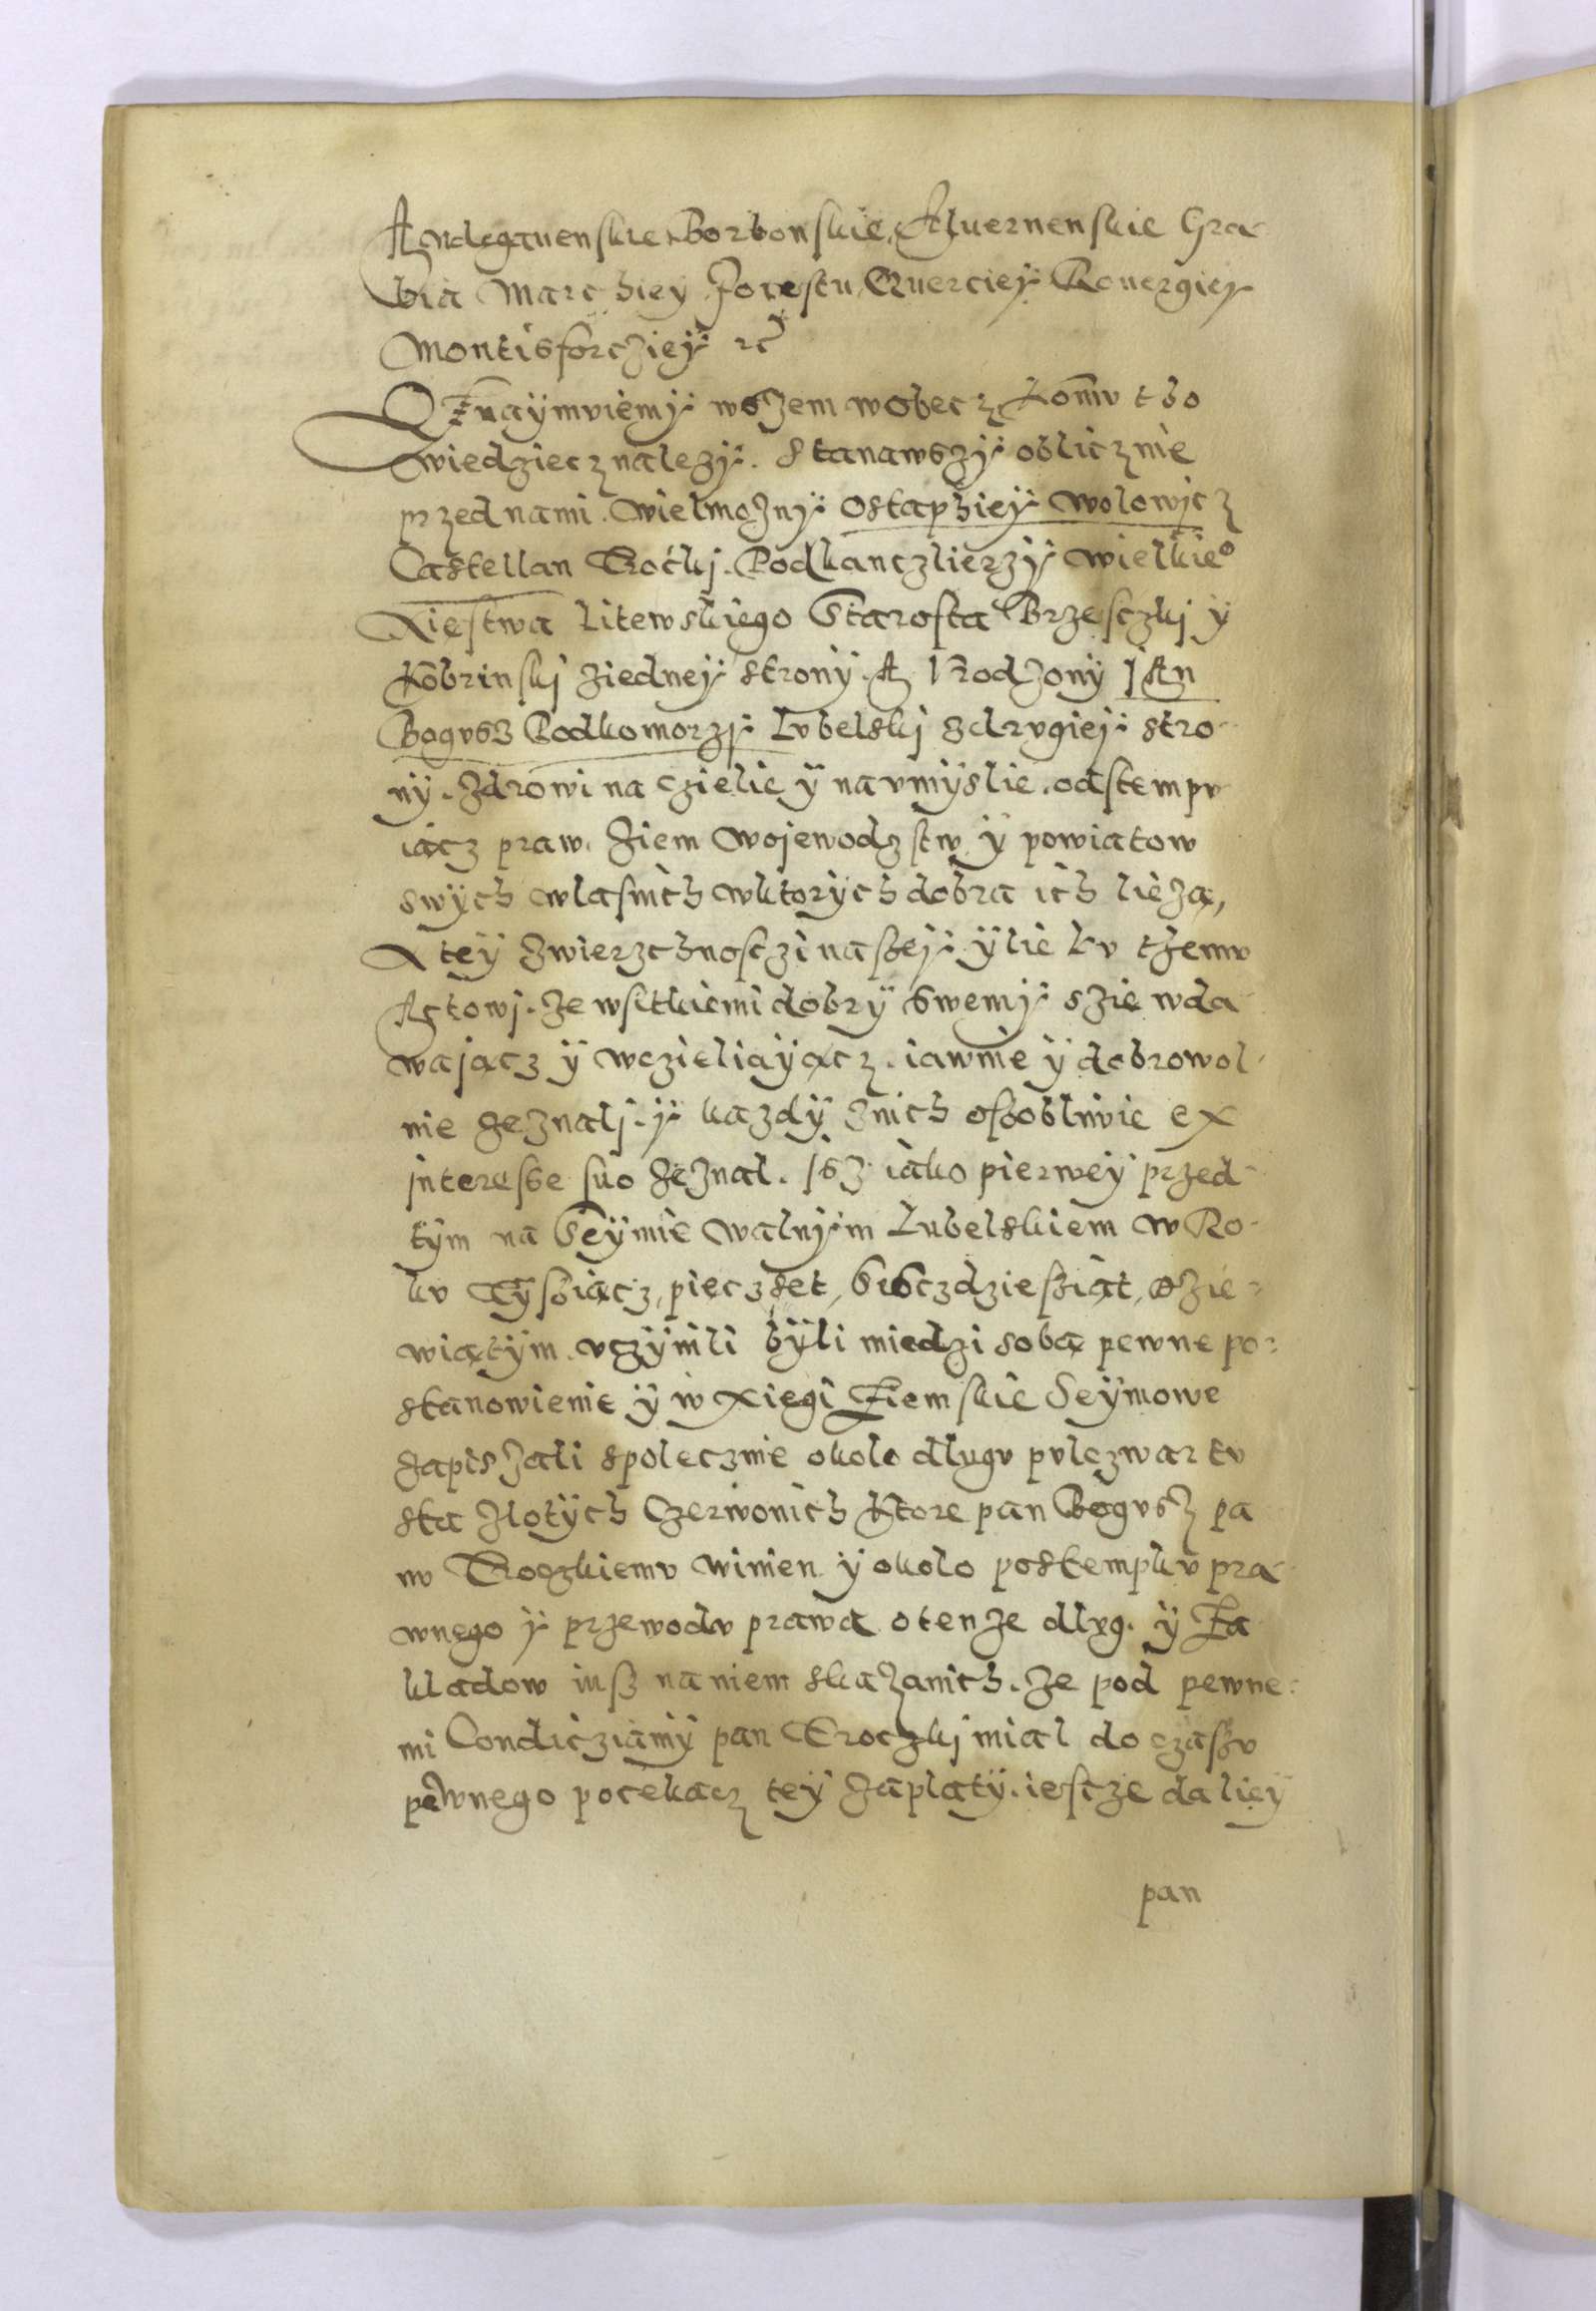 Andegauenskie Borbonskie, Aluernenskie Gra-
bia Marchiey Forestu Querciey Rouergiey
Montisforcziey rc
Oznaymuiemy wszem wobecz komv tho
wiedziecz nalezy. Stanawszy oblicznie
przed nami. Wielmozny Ostaphiey Wolowicz
Castellan Trocki. Podkanczlierzy Wielkie°
Xiestwa Litewskiego Starosta Brzesczki y
Kobrinskj ziedney strony. A Vrodzony Jan
Bogvsz Podkomorzy Lvbelskj zdrvgiey stro-
ny. zdrowi na czielie y na vmyslie. odstempv
iącz praw. Ziem Wojewodzstw y powiatow
swych wlasnich wktorych dobra ich liezą,
A tey zwierzchnosczi naszey ylie kv themv
Actowj. ze wsitkiemi dobry swemy szie wda-
wając y wczieliayącz. iawnie y dobrowol-
nie zeznalj. y kazdy znich osobliwie ex
jnteresse suo zeznal. Isz iako pierwey przed
tym na Seymie walnym Lubelskiem w Ro-
kv Tysiącz, pieczset, szesczdziesiąt, dzie-
wiątym. vczynili byli miedzi sobą pewne po-
stanowienie y w xiegi Ziemskie Seymowe
zapiszali spolecznie okolo dlugv pvlczwartv
sta zlotych Czerwonich ktore pan Bogvsz pa
nv Troczkiemv winien y okolo postempkv pra
wnego y przewodv prawa o tenze dlvg. y Za
kladow iusz na niem skazanich. ze pod pewne-
mi Condicziamy pan Troczkj mial do czaszv
pewnego pocekacz tey zaplaty. iescze daliey
pan